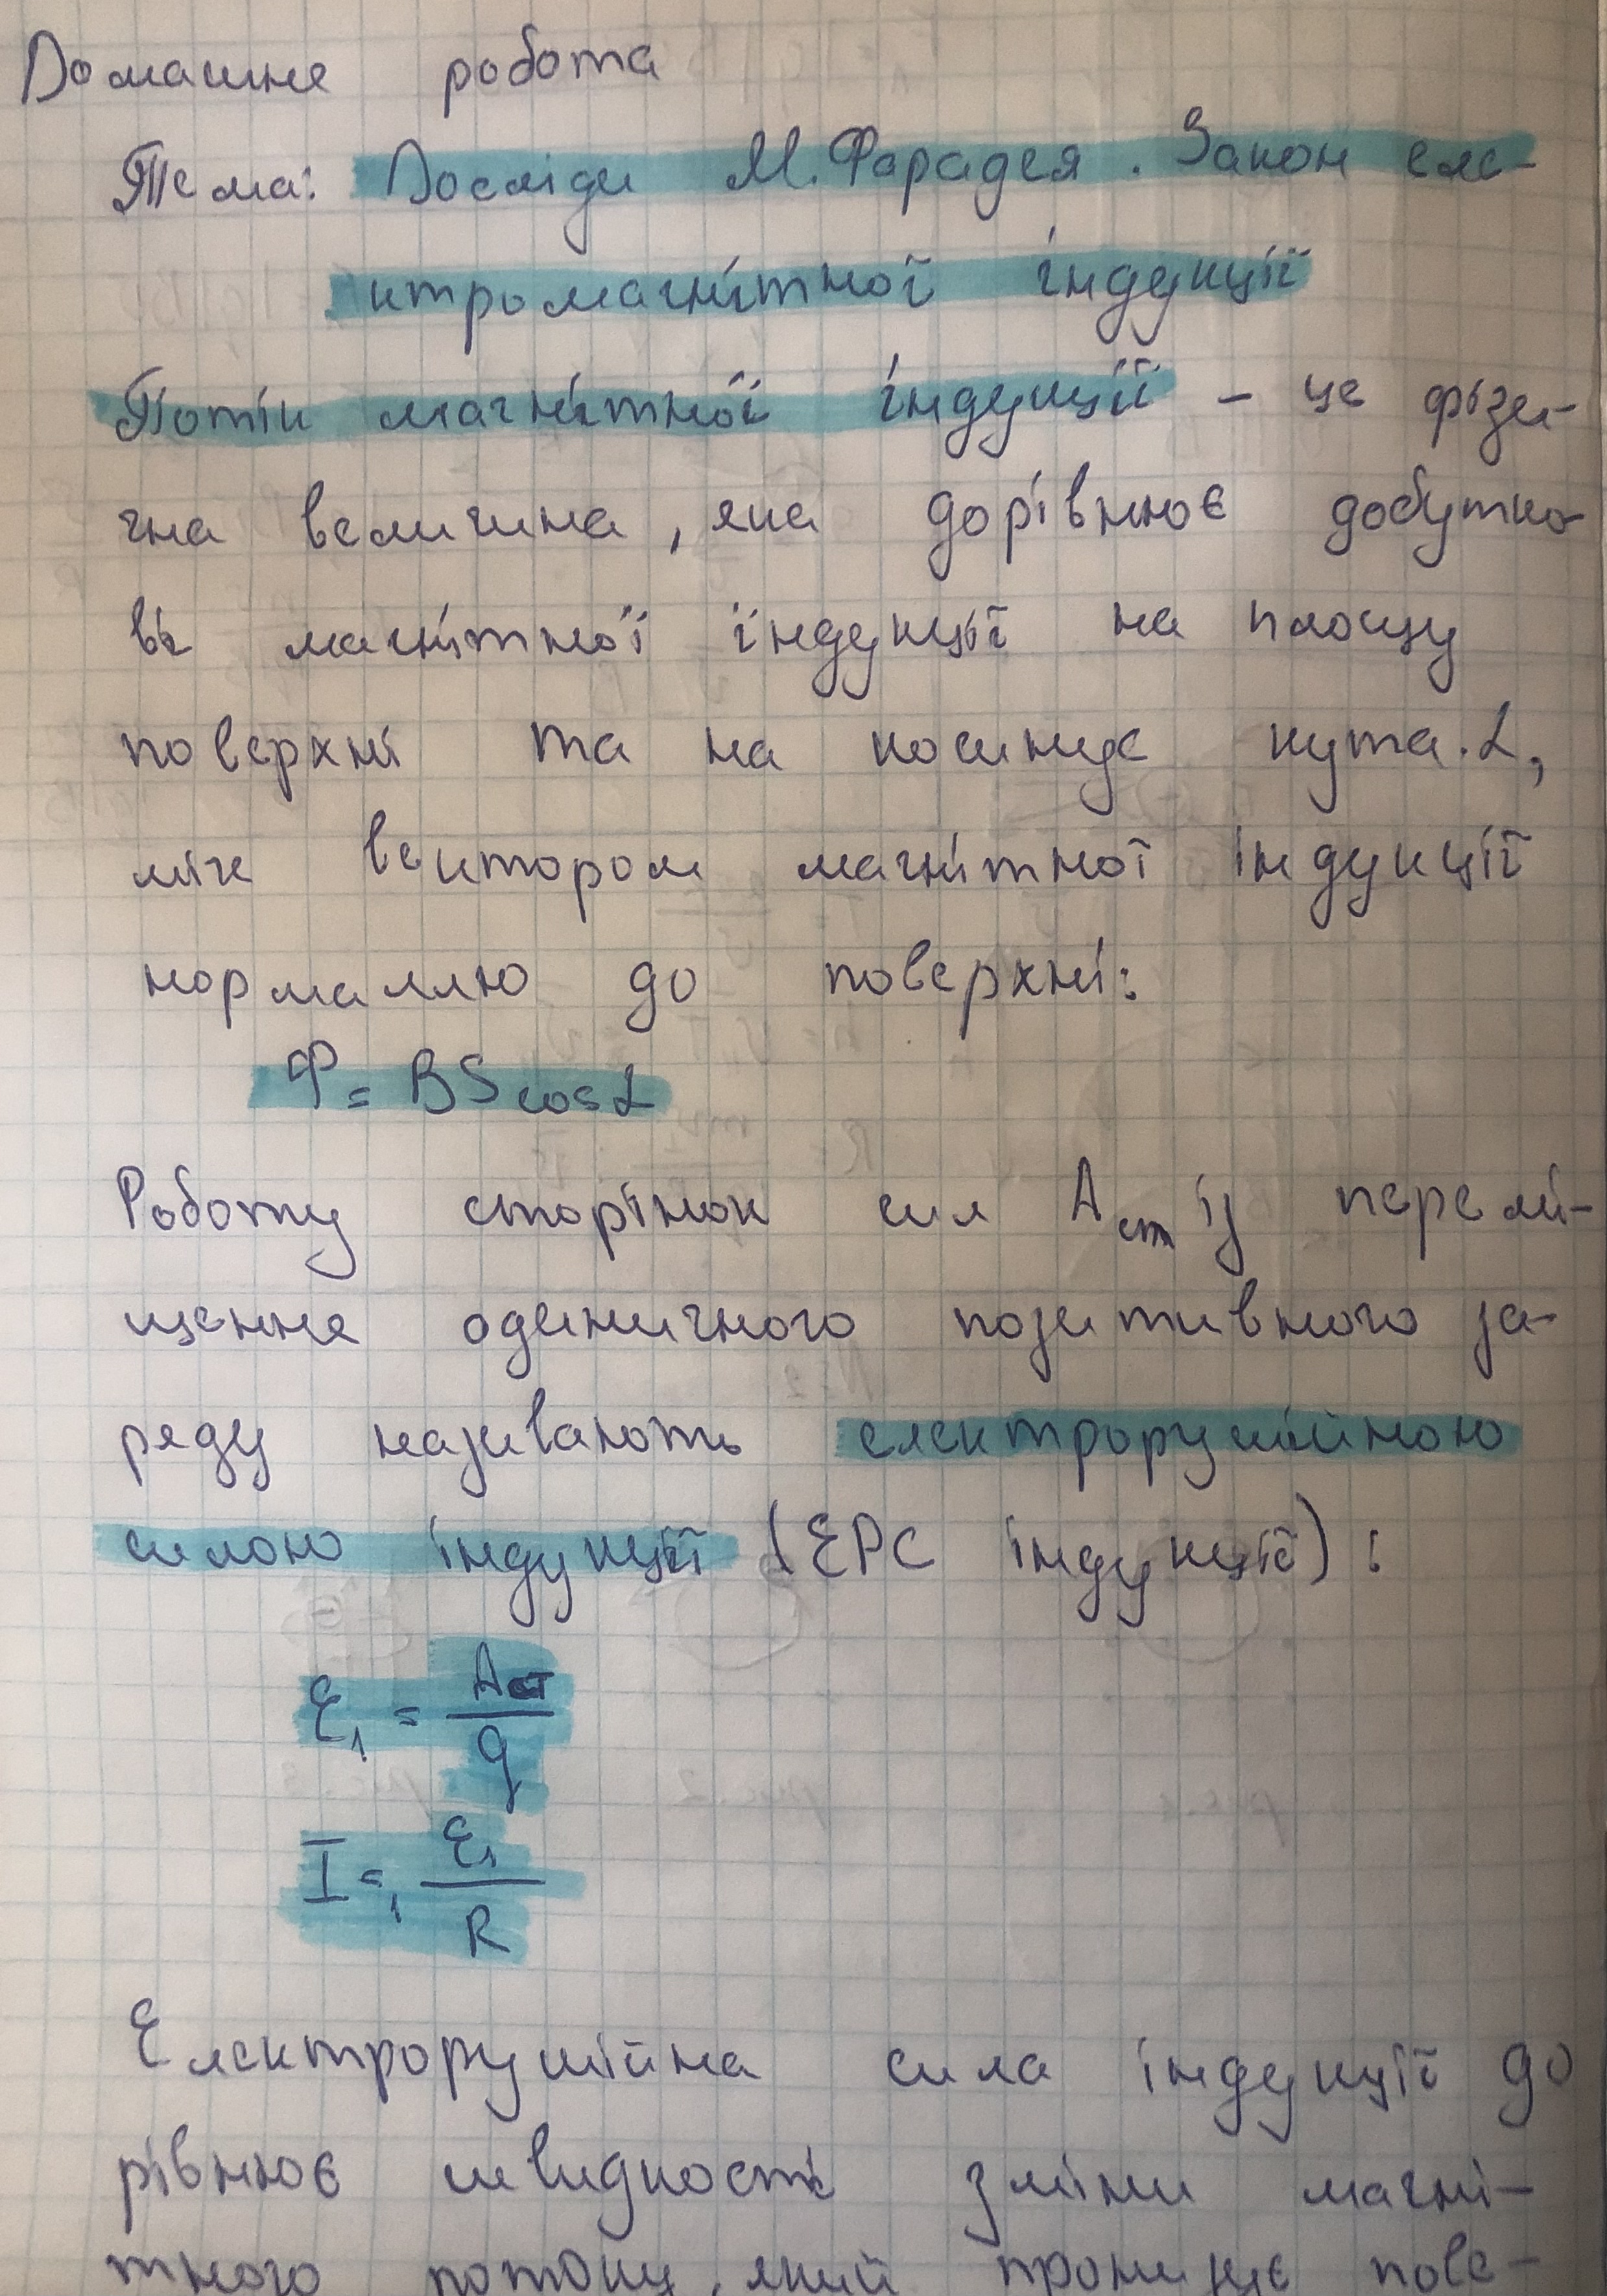 Домашня робота
Тема: Досліди М. Фарадея. Закон еле-
ктромагнітної індукції
Потік магнітної індукції - це фізи-
чна величина, яка дорівнює добутко-
ві магнітної індукції на площу
поверхні та на косинус кута α,
між вектором магнітної індукції
нормаллю до поверхні:
Φ = BS cos α
Роботу сторінок сил Aст із перемі-
щення одиничного позитивного за-
ряду називають електрорушійною
силою індукції (ЕРС індукції):
ε₁ = Aст / q
I = ₁ ε₁ / R
Електрорушійна сила індукції до
рівнює швидкості зміни магні-
тного потоку, який пронизує пове-